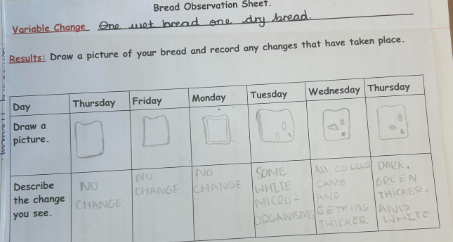 Bread Observation Sheet.
Variable Change One wet bread one dry bread.
Results: Draw a picture of your bread and record any changes that have taken place.
Day Thursday Friday Monday Tuesday Wednesday Thursday
Draw a
picture.
Describe
the change
you see.
NO
CHANGE
NO
CHANGE
NO
CHANGE
SOME
WHITE
MICRO-
ORGANISMS
COLOUR
CAME
AND
GETTING
THICKER
DARK,
GREEN
THICKER.
AND
WHITE